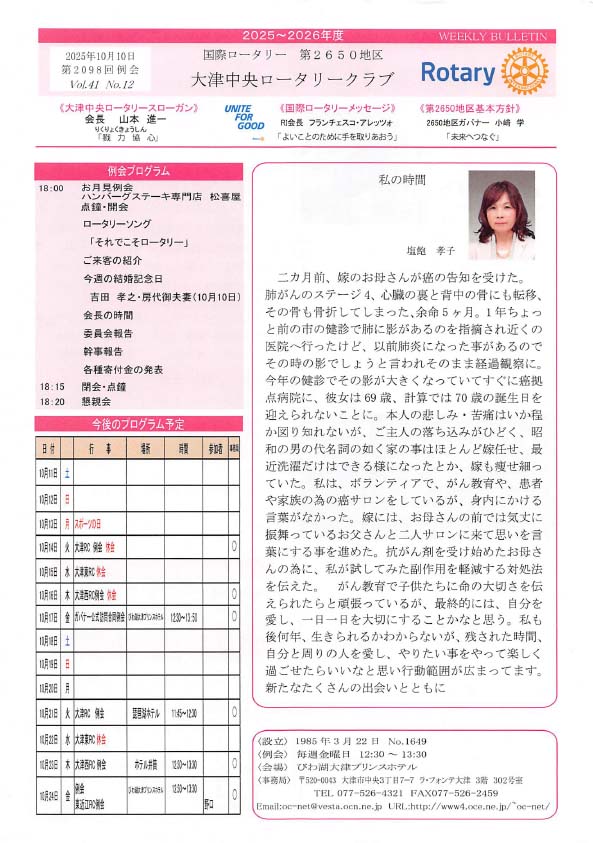 2025～2026年度
WEEKLY BULLETIN
2025年10月10日
第2098回例会
Vol.41 No.12
国際ロータリー 第2650地区
大津中央ロータリークラブ
Rotary
《大津中央ロータリースローガン》
会長 山本 進一
りくりょくきょうしん
「戮力協心」
UNITE
FOR
GOOD
《国際ロータリーメッセージ》
RI会長 フランチェスコ・アレッツォ
「よいことのために手を取りあおう」
《第2650地区基本方針》
2650地区ガバナー 小﨑 学
「未来へつなぐ」
例会プログラム
18:00 お月見例会
ハンバーグステーキ専門店 松喜屋
点鐘・開会
ロータリーソング
「それでこそロータリー」
ご来客の紹介
今週の結婚記念日
吉田 孝之・房代御夫妻(10月10日)
会長の時間
委員会報告
幹事報告
各種寄付金の発表
18:15 閉会・点鐘
18:20 懇親会
今後のプログラム予定
日付 行事 場所 時間 参加者 事務局
10月11日 土
10月12日 日
10月13日 月 スポーツの日
10月14日 火 大津RC 例会 休会 〇
10月15日 水 大津東RC 休会
10月16日 木 大津西RC例会 休会 〇
10月17日 金 ガバナー公式訪問合同例会 びわ湖大津プリンスホテル 12:30～13:50 〇
10月18日 土
10月19日 日
10月20日 月
10月21日 火 大津RC 例会 琵琶湖ホテル 11:45～12:30 〇
10月22日 水 大津東RC 休会
10月23日 木 大津西RC例会 ホテル井筒 12:30～13:30 〇
10月24日 金 例会 びわ湖大津プリンスホテル 12:30～13:30 〇
東近江RC例会 野口
私の時間
塩飽 孝子
二カ月前、嫁のお母さんが癌の告知を受けた。
肺がんのステージ4、心臓の裏と背中の骨にも転移、
その骨も骨折してしまった､余命5ヶ月。1年ちょっ
と前の市の健診で肺に影があるのを指摘され近くの
医院へ行ったけど、以前肺炎になった事があるので
その時の影でしょうと言われそのまま経過観察に。
今年の健診でその影が大きくなっていてすぐに癌拠
点病院に、彼女は69歳、計算では70歳の誕生日を
迎えられないことに。本人の悲しみ・苦痛はいか程
か図り知れないが、ご主人の落ち込みがひどく、昭
和の男の代名詞の如く家の事はほとんど嫁任せ、最
近洗濯だけはできる様になったとか、嫁も瘦せ細っ
ていた。私は、ボランティアで、がん教育や、患者
や家族の為の癌サロンをしているが、身内にかける
言葉がなかった。嫁には、お母さんの前では気丈に
振舞っているお父さんと二人サロンに来て思いを言
葉にする事を進めた。抗がん剤を受け始めたお母さ
んの為に、私が試してみた副作用を軽減する対処法
を伝えた。 がん教育で子供たちに命の大切さを伝
えられたらと頑張っているが、最終的には、自分を
愛し、一日一日を大切にすることかなと思う。私も
後何年、生きられるかわからないが、残された時間、
自分と周りの人を愛し、やりたい事をやって楽しく
過ごせたらいいなと思い行動範囲が広まってます。
新たなたくさんの出会いとともに
〈設立〉 1985年3月22日 No.1649
〈例会〉 毎週金曜日 12:30 ～ 13:30
〈会場〉 びわ湖大津プリンスホテル
〈事務局〉 〒520-0043 大津市中央3丁目7-7 ラ・フォンテ大津 3階 302号室
TEL 077-526-4321 FAX077-526-2459
Email:oc-net@vesta.ocn.ne.jp URL:http://www4.oce.ne.jp/~oc-net/